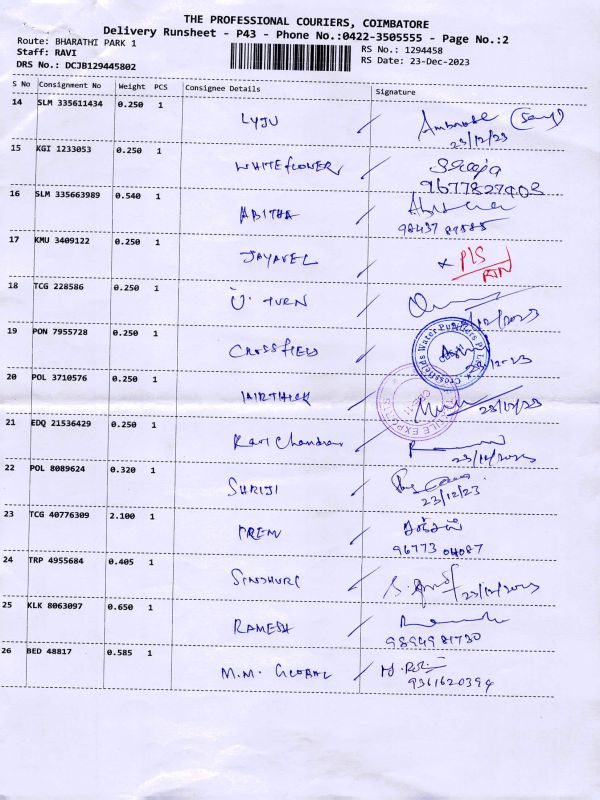 THE PROFESSIONAL COURIERS, COIMBATORE
Delivery Runsheet - P43 - Phone No.:0422-3505555 - Page No.:2
Route: BHARATHI PARK 1 RS No.: 1294458
Staff: RAVI RS Date: 23-Dec-2023
DRS No.: DCJB129445802
S No Consignment No Weight PCS Consignee Details Signature
14 SLM 335611434 0.250 1 LYJU Ambrose
23/12/23
15 KGI 1233053 0.250 1 WHITEFLOWER
9677827403
16 SLM 335663989 0.540 1 ABITHA
17 KMU 3409122 0.250 1 JAYAVEL x PLS
RTN
18 TCG 228586 0.250 1 U. TURN
19 PON 7955728 0.250 1 CROSSFIELD
Crossfields Water Purifiers
20 POL 3710576 0.250 1 23/12/23
21 EDQ 21536429 0.250 1 Ravi Chandran
23/12/2023
22 POL 8089624 0.320 1 SHRIJI
23/12/23
23 TCG 40776309 2.100 1 PREM
96773 04087
24 TRP 4955684 0.405 1 SINDHURI 23/12/2023
25 KLK 8063097 0.650 1 RAMESH
9894981730
26 BED 48817 0.585 1 M.M. GLOBAL
9361620394